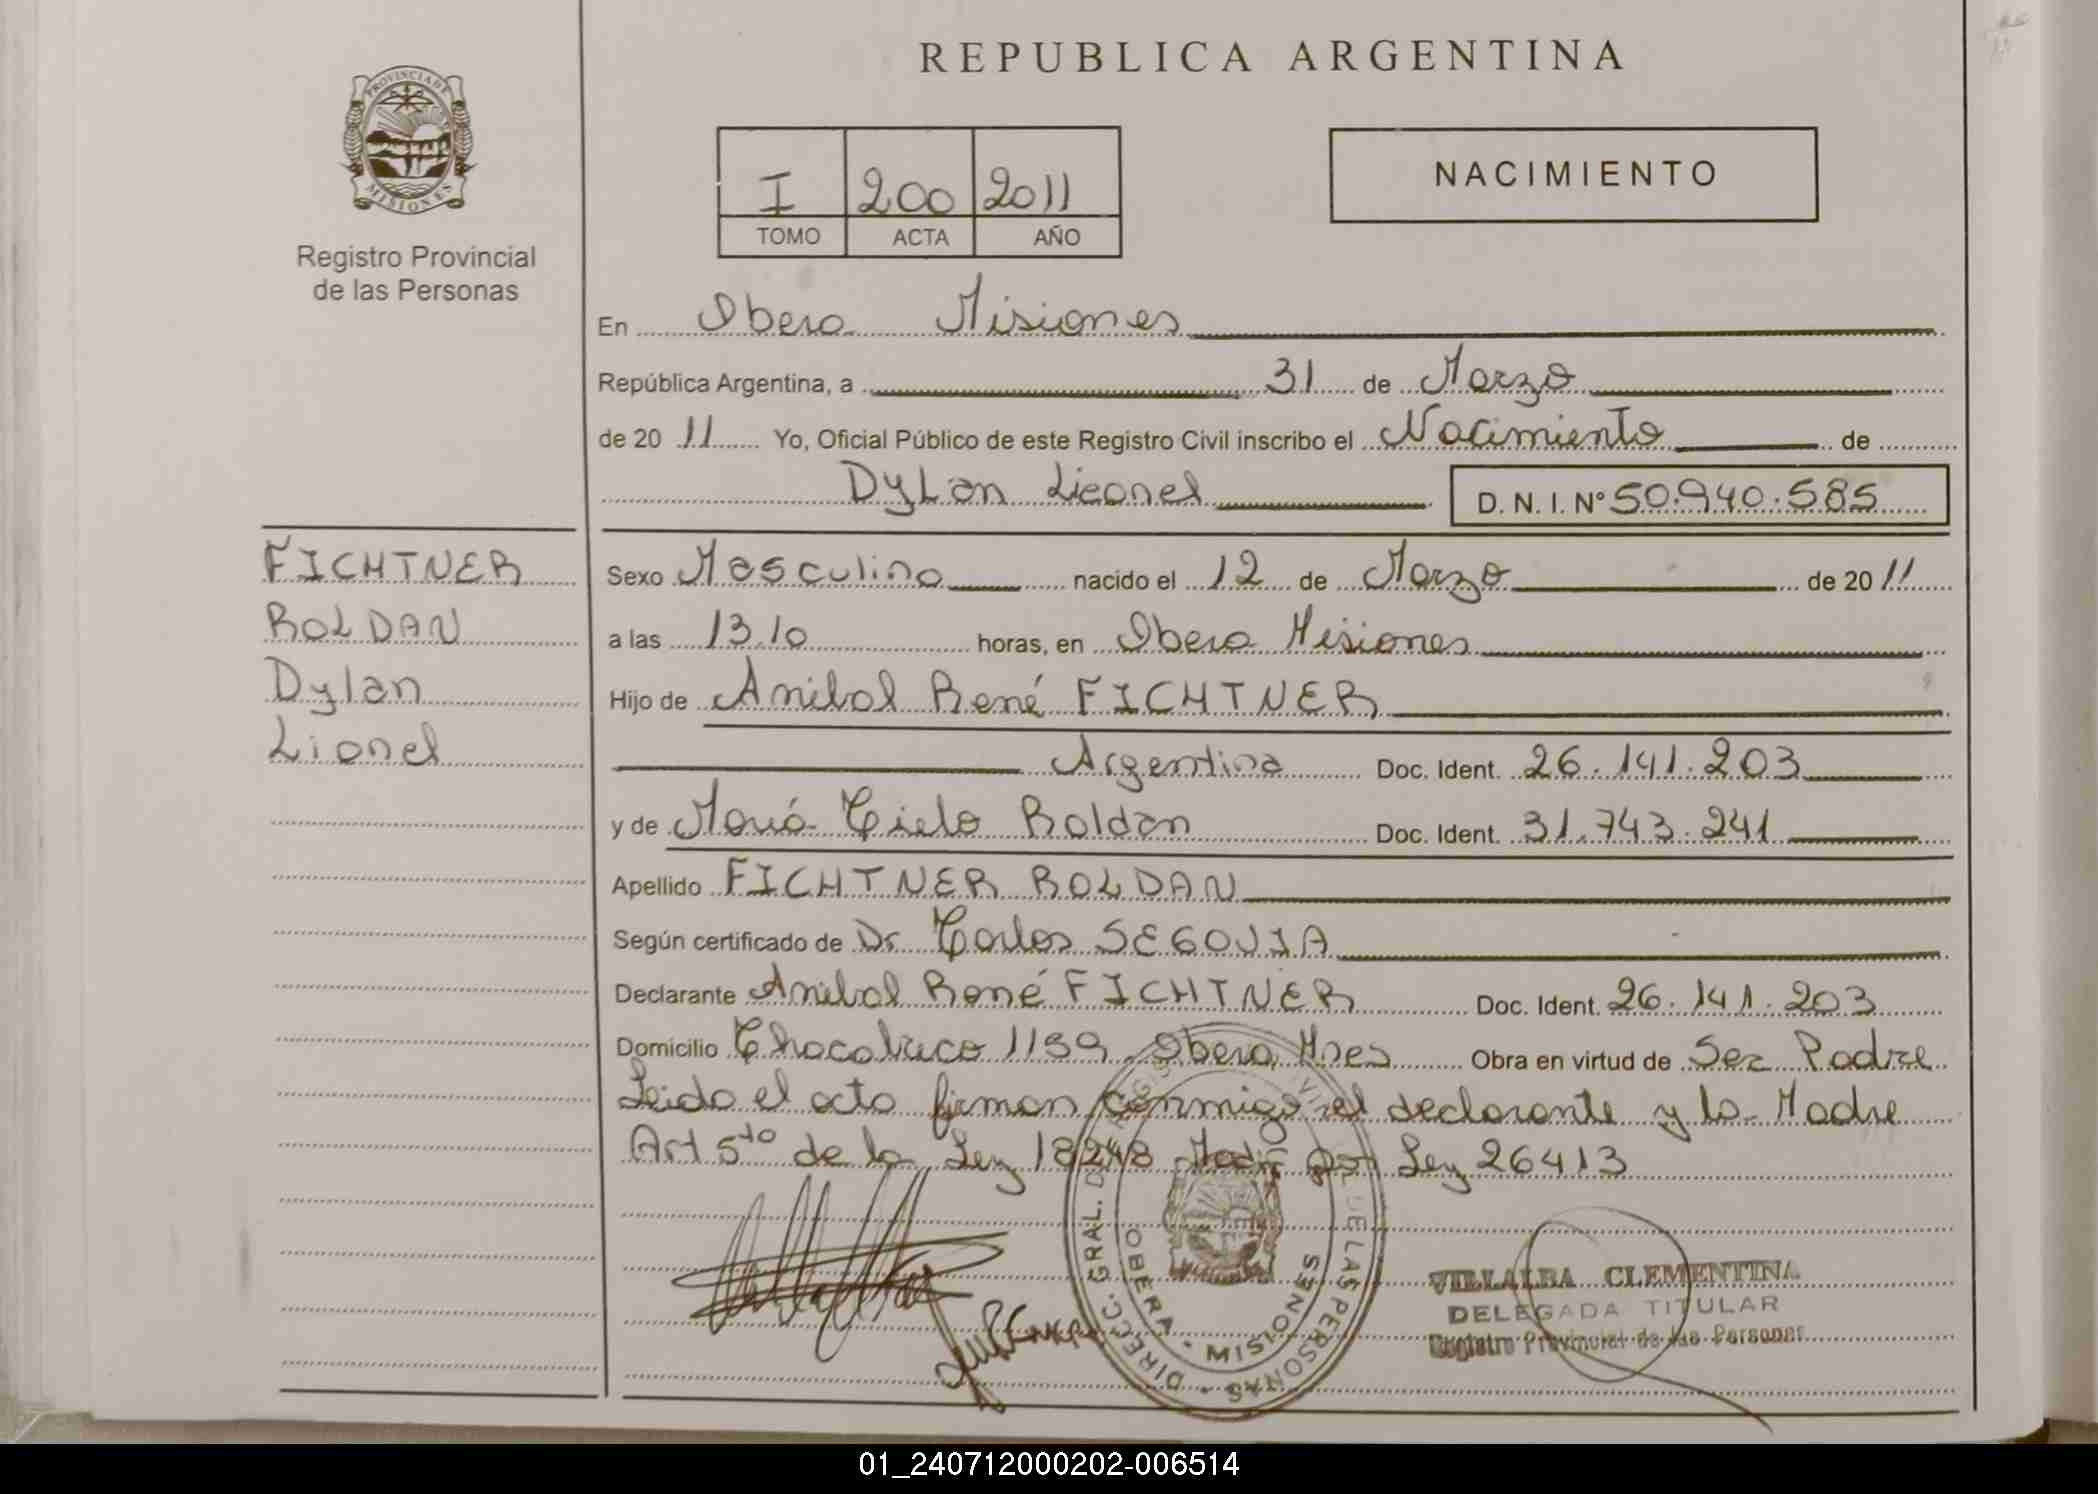 REPUBLICA ARGENTINA
PROVINCIA DE
MISIONES
Registro Provincial
de las Personas
I 200 2011
TOMO ACTA AÑO
NACIMIENTO
En Obera Misiones
República Argentina, a 31 de Marzo
de 20 11 Yo, Oficial Público de este Registro Civil inscribo el Nacimiento de
Dylan Lieonel D. N. I. N° 50.940.585
FICHTNER
ROLDAN
Dylan
Lionel
Sexo Masculino nacido el 12 de Marzo de 20 11
a las 13.10 horas, en Obera Misiones
Hijo de Anibal René FICHTNER
Argentina Doc. Ident. 26.141.203
y de María Cielo Roldan Doc. Ident. 31.743.241
Apellido FICHTNER ROLDAN
Según certificado de Dr. Carlos SEGOVIA
Declarante Anibal René FICHTNER Doc. Ident. 26.141.203
Domicilio Chacabuco 1159 Obera, Mnes Obra en virtud de Ser Padre
Leido el acta firman conmigo el declarante y la Madre
Art 5to de la Ley 18248 Modif por Ley 26413
DIRECC. GRAL. DE LAS PERSONAS
OBERA - MISIONES
VILLALBA CLEMENTINA
DELEGADA TITULAR
Registro Provincial de las Personas
01_240712000202-006514